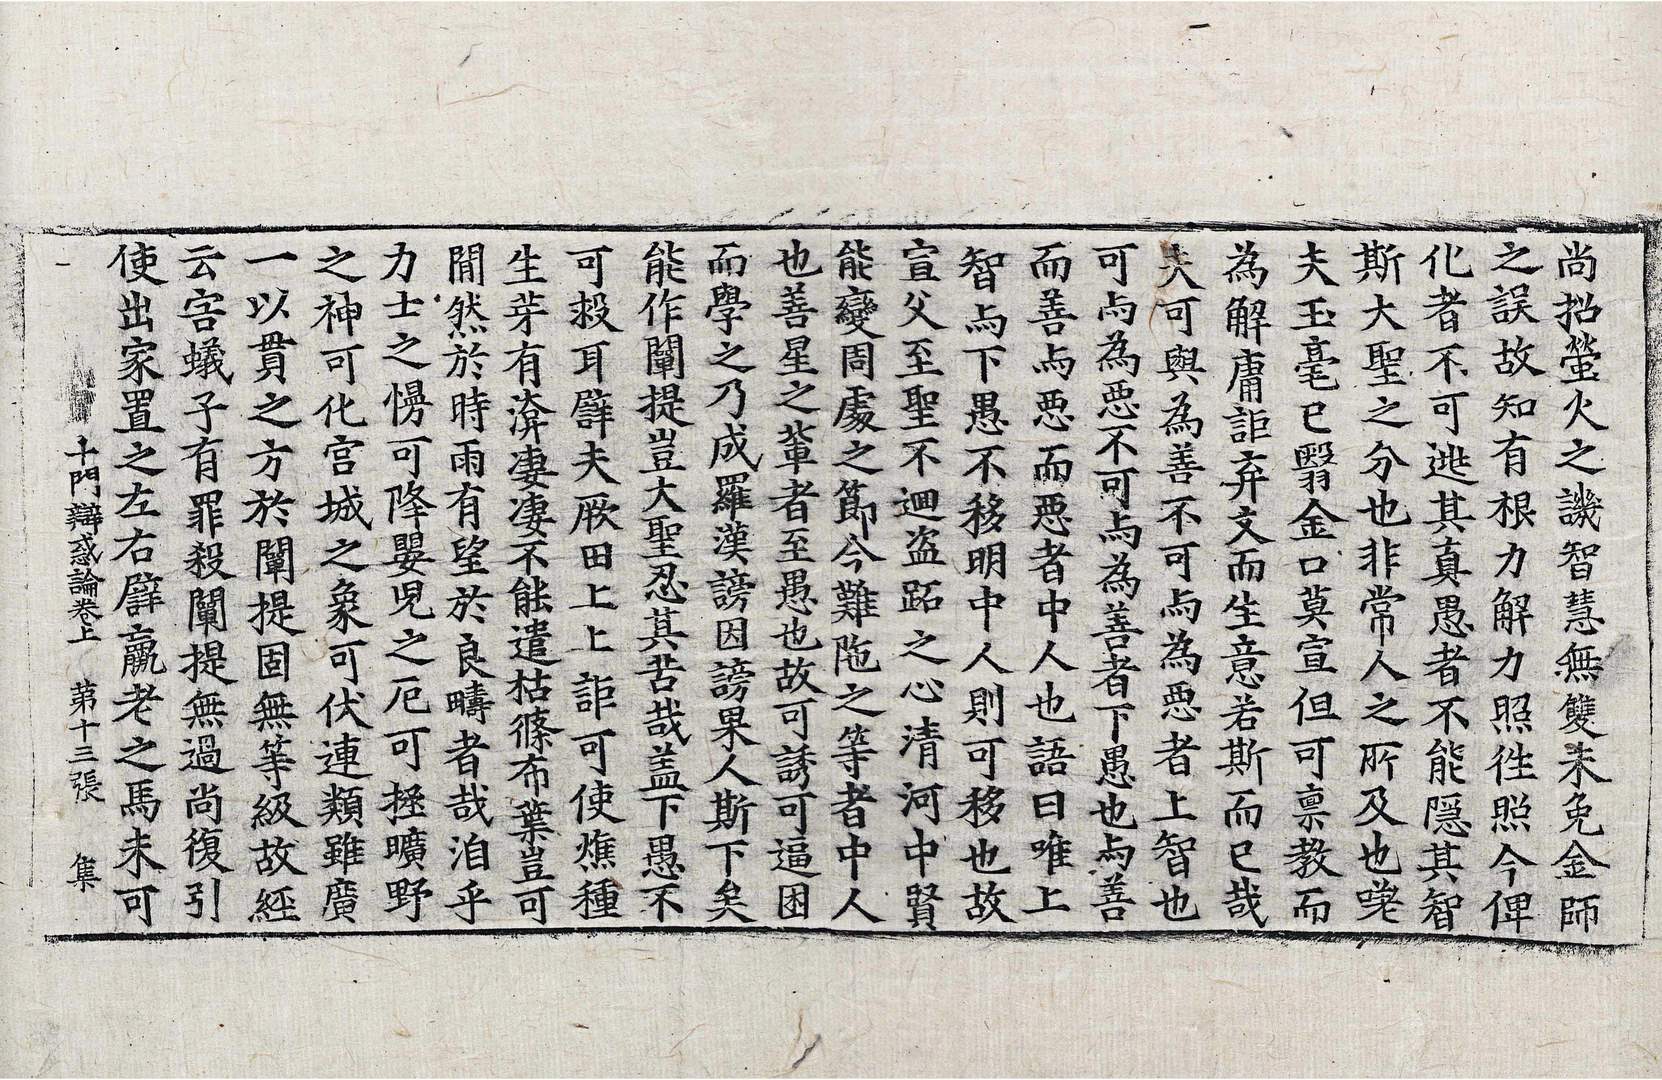 尚招螢火之譏智慧無雙未免金師
之誤故知有根力解力照徃照今俾
化者不可逃其真愚者不能隱其智
斯大聖之分也非常人之所及也嗟
夫玉毫已翳金口莫宣但可禀教而
為解庸詎弃文而生意若斯而已哉
夫可與為善不可与為惡者上智也
可与為惡不可与為善者下愚也与善
而善与惡而惡者中人也語曰唯上
智与下愚不移明中人則可移也故
宣父至聖不迴盜跖之心清河中賢
能變周處之節今難陁之等者中人
也善星之輩者至愚也故可誘可逼因
而學之乃成羅漢謗因謗果人斯下矣
能作闡提豈大聖忍其苦哉盖下愚不
可救耳譬夫厥田上上詎可使燋種
生芽有渰凄凄不能遣枯篠布葉豈可
閒然於時雨有望於良疇者哉洎乎
力士之慢可降嬰兒之厄可拯曠野
之神可化宫城之象可伏連類雖廣
一以貫之方於闡提固無等級故經
云害蟻子有罪殺闡提無過尚復引
使出家置之左右譬羸老之馬未可
十門辯惑論卷上 第十三張 集